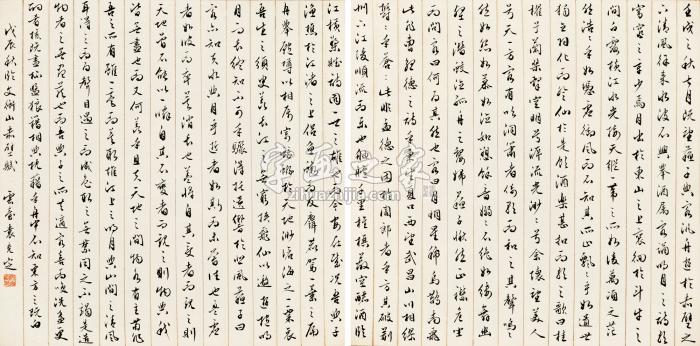 壬戌之秋七月既望蘇子與客汎舟遊於赤壁之
下清風徐來水波不興舉酒屬客誦明月之詩歌
窈窕之章少焉月出於東山之上裴徊於斗牛之
間白露橫江水光接天縱一葦之所如凌萬頃之茫
然浩浩乎如憑虛御風而不知其所止飄飄乎如遺世
獨立羽化而登仙於是飲酒樂甚扣舷而歌之歌曰桂
櫂兮蘭槳擊空明兮泝流光渺渺兮余懷望美人
兮天一方客有吹洞簫者倚歌而和之其聲嗚嗚
然如怨如慕如泣如訴餘音嫋嫋不絕如縷舞幽
壑之潛蛟泣孤舟之嫠婦蘇子愀然正襟危坐
而問客曰何為其然也客曰月明星稀烏鵲南飛
此非曹孟德之詩乎西望夏口東望武昌山川相繆
鬱乎蒼蒼此非孟德之困於周郎者乎方其破荊
州下江陵順流而東也舳艫千里旌旗蔽空釃酒臨
江橫槊賦詩固一世之雄也而今安在哉況吾與子
漁樵於江渚之上侶魚蝦而友麋鹿駕一葉之扁
舟舉匏樽以相屬寄蜉蝣於天地渺滄海之一粟哀
吾生之須臾羨長江之無窮挾飛仙以遨遊抱明
月而長終知不可乎驟得託遺響於悲風蘇子曰
客亦知夫水與月乎逝者如斯而未嘗往也盈虛
者如彼而卒莫消長也蓋將自其變者而觀之則
天地曾不能以一瞬自其不變者而觀之則物與我
皆無盡也而又何羨乎且夫天地之間物各有主苟非
吾之所有雖一毫而莫取惟江上之明月與山間之清風
耳得之而為聲目遇之而成色取之無禁用之不竭是造
物者之無盡藏也而吾與子之所共適客喜而笑洗盞更
酌肴核既盡杯盤狼籍相與枕藉乎舟中不知東方之既白
戊辰秋臨文衡山赤壁賦 雲臺袁克定
字画之家